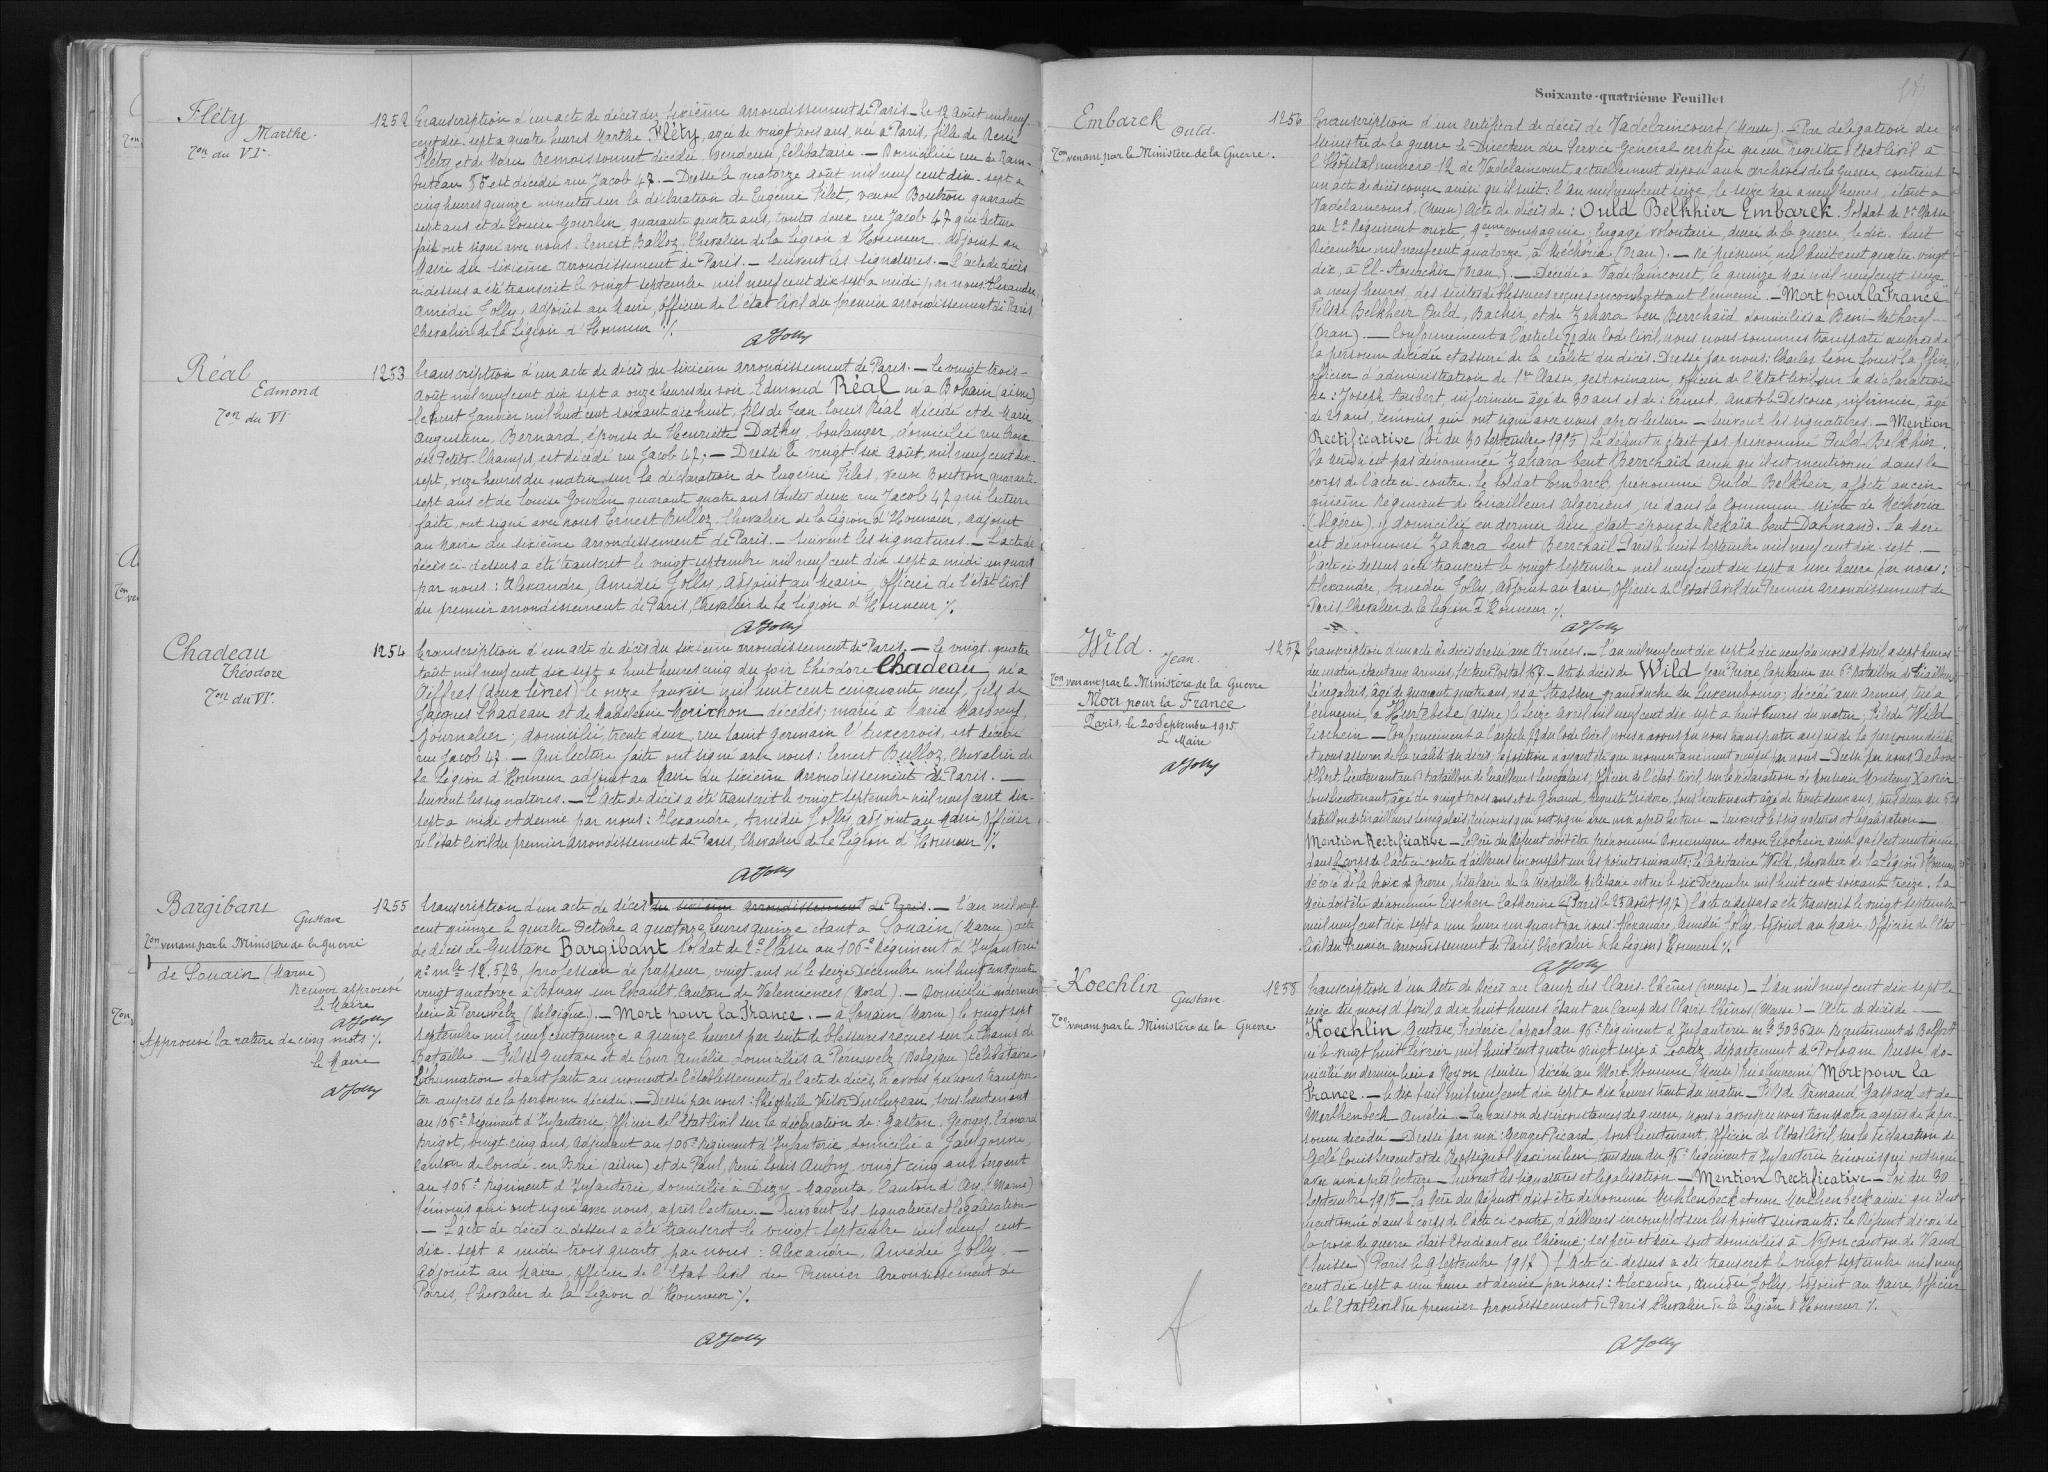 Fléty
Marthe.
Ton du VIe
1252
Transcription d'un acte de décès du sixième arrondissement de Paris. — Le 12 Août mil neuf
cent dix-sept a quatre heures Marthe Fléty, agée de vingt trois ans, née a Paris, fille de René
Fléty et de Marie Remoissonnet décédée, vendeuse, célibataire. — Domiciliée rue de Ram-
buteau est décédée rue Jacob 47. — Dressé le quatorze août mil neuf cent dix-sept a
cinq heures quinze minutes sur la déclaration de Eugénie Filet, veuve Boutron quarante
sept ans et de Louise Gourlin, quarante quatre ans, toutes deux rue Jacob 47 qui lecture
faite ont signé avec nous Ernest Bulloz, Chevalier de la Légion d'Honneur adjoint au
Maire du sixième arrondissement de Paris. — Suivent les signatures. — L'acte de décès
ci-dessus a été transcrit le vingt septembre mil neuf cent dix sept a midi par nous: Alexandre,
Amédée Jolly, adjoint au Maire, officier de l'état civil du premier arrondissement de Paris,
Chevalier de la Légion d'Honneur ./.
AJolly
Réal
Edmond
Ton du VI
1253
Transcription d'un acte de décès du sixième arrondissement de Paris. — Le vingt trois
Août mil neuf cent dix sept a onze heures du soir, Edmond Réal né a Bohain (aisne)
le huit Janvier mil huit cent soixante dix huit, fils de Jean-Louis Réal décédé et de Marie
Augustine, Bernard, époux de Henriette Dathy, boulanger, domicilié rue Croix
des Petits-Champs, est décédé rue Jacob 47. — Dressé le vingt-six Août, mil neuf cent dix-
sept, onze heures du matin sur la déclaration de Eugénie Filet, veuve Boutron quarante
sept ans et de Louise Gourlin quarante quatre ans toutes deux rue Jacob 47 qui lecture
faite, ont signé avec nous Ernest Bulloz, Chevalier de la Légion d'Honneur, adjoint
au Maire du sixième arrondissement de Paris. — Suivent les signatures. — L'acte de
décès ci-dessus a été transcrit le vingt septembre mil neuf cent dix sept a midi un quart
par nous: Alexandre, Amédée Jolly, adjoint au Maire, officier de l'état civil
du premier arrondissement de Paris, Chevalier de la Légion d'Honneur ./.
AJolly
Chadeau
Théodore
Ton du VIe
1254
Transcription d'un acte de décès du sixième arrondissement de Paris. — Le vingt-quatre
Août mil neuf cent dix sept a huit heures cinq du soir Théodore Chadeau, né a
Aiffres (deux Sèvres) le onze Janvier mil huit cent cinquante neuf, fils de
Jacques Chadeau et de Madeleine Morichon décédés; marié a Marie
Journalier; domicilié, trente deux rue Saint Germain l'Auxerrois, est décédé
rue Jacob 47. — Qui lecture faite ont signé avec nous: Ernest Bulloz, Chevalier de
la Légion d'Honneur adjoint au Maire du sixième arrondissement de Paris. —
Suivent les signatures. — L'Acte de décès a été transcrit le vingt septembre mil neuf cent dix-
sept a midi et demie par nous: Alexandre, Amédée Jolly, adjoint au Maire, officier
de l'état civil du premier arrondissement de Paris, Chevalier de la Légion d'Honneur ./.
AJolly
Bargibant
Gustave
Ton venant par le Ministère de la Guerre
de Souain (Marne)
Renvoi approuvé
le Maire
AJolly
Approuvé la rature de cinq mots ./.
le Maire
AJolly
1255
Transcription d'un acte de décès du sixième arrondissement de Paris. — L'an mil neuf
cent quinze le quatre Octobre a quatorze heures quinze étant a Souain (Marne) acte
de décès de Gustave Bargibant Soldat de 2e Classe au 106e Régiment d'Infanterie
No mle 12.573, profession de frappeur, vingt ans né le seize Décembre mil huit cent quatre
vingt quatorze à sur Escault, Canton de Valenciennes (Nord). — Domicilié en dernier
lieu a Peruwelz (Belgique). — Mort pour la France. — a Souain (Marne) le vingt sept
Septembre mil neuf cent quinze a quinze heures par suite de blessures reçues sur le Champ de
Bataille. — Fils de Gustave et de Cour Amélie, domiciliés a Peruwelz (Belgique) Célibataire.
L'inhumation étant faite au moment de l'établissement de l'acte de décès, n'avons pu nous transpor-
ter auprès de la personne décédée. — Dressé par nous: Théophile Victor Sous-lieutenant
au 106e Régiment d'Infanterie, Officier de l'Etat Civil sur la déclaration de: Gaston, Georges, Edouard
Brigot, vingt cinq ans, adjudant au 106e Régiment d'Infanterie, domicilié a Jaulgonne,
Canton de Condé-en-Brie (aisne) et de Paul, René Louis Aubry vingt cinq ans, sergent
au 106e Régiment d'Infanterie, domicilié à Dizy-Magenta, Canton d'Ay (Marne)
témoins qui ont signé avec nous, après lecture. — Suivent les signatures et légalisation —
— L'acte de décès ci-dessus a été transcrit le vingt Septembre mil neuf cent
dix-sept a midi trois quarts, par nous: Alexandre, Amédée Jolly. —
Adjoint au Maire, officier de l'Etat Civil du Premier Arrondissement de
Paris, Chevalier de la Légion d'Honneur ./.
AJolly
Soixante-quatrième Feuillet
64
Embarek
Ould.
Ton venant par le Ministère de la Guerre.
1256
Transcription d'un certificat de décès de Vadelaincourt (Meuse). — Par délégation du
Ministre de la guerre le Directeur du Service Général certifie qu'au registre d'Etat Civil à
l'Hôpital numéro 12 de Vadelaincourt, actuellement déposé aux archives de la Guerre, contient
un acte de décès conçu ainsi qu'il suit: l'an mil neuf cent seize, le seize Mai a neuf heures, étant a
Vadelaincourt, (Meuse) Acte de décès de: Ould Belkhier Embarek. Soldat de 2e Classe
au 2e Régiment mixte, 9eme compagnie; Engagé volontaire, durée de la guerre, le dix-huit
Décembre mil neuf cent quatorze, à Méchéria (Oran). — Né présumé mil huit cent quatre-vingt
dix, à El-Aouachir (Oran). — Décédé a Vadelaincourt, le quinze Mai mil neuf cent seize
a neuf heures, des suites de blessures reçues en combattant l'ennemi. — Mort pour la France
Fils de Belkheir Ould, Bachir, et de Zahara ben Berrchaïd domiciliés a Beni
(Oran). — Conformément a l'article 77 du Code Civil, nous nous sommes transporté auprès de
la personne décédée et assuré de la réalité du décès. Dressé par nous: Charles Léon Louis
officier d'administration de 1re Classe, gestionnaire, officier de l'Etat Civil, sur la déclaration
de: Joseph Aubert, infirmier âgé de 30 ans et de: Ernest, Anatole infirmier, âgé
de 21 ans, témoins qui ont signé avec nous après lecture — Suivent les signatures. — Mention
Rectificative (loi du 30 septembre 1915) Le défunt n'était pas prénommé Ould Belkhier.
Sa mère n'est pas dénommée Zahara bent Berrchaïd ainsi qu'il est mentionné dans le
corps de l'acte ci-contre. Le soldat Embarek prénommé Ould Belkheir, affecté au cin-
quième Régiment de Tirailleurs Algériens, né dans la Commune Mixte de Méchéria
(Algérie), y domicilié en dernier lieu, était époux de Rekaïa bent Dahmane. Sa mère
est dénommée Zahara bent Berrchaïl. Paris le huit Septembre mil neuf cent dix-sept. —
L'acte ci-dessus a été transcrit le vingt septembre mil neuf cent dix sept a une heure par nous:
Alexandre, Amédée Jolly, adjoint au Maire, Officier de l'Etat Civil du Premier Arrondissement de
Paris, Chevalier de la Légion d'Honneur ./.
AJolly
Wild.
Jean.
Ton venant par le Ministère de la Guerre
Mort pour la France
Paris, le 20 Septembre 1915
Le Maire
AJolly
1257
Transcription d'un acte de décès dressé aux Armées. — L'an mil neuf cent dix sept le dix neuf du mois d'Avril a sept heures
du matin, étant aux armées, Secteur Postal 189. — Acte de décès de Wild Jean Pierre, Capitaine au 6e Bataillon de Tirailleurs
Sénégalais, âgé de quarante quatre ans, né a Strassen grand duché du Luxembourg; décédé aux Armées, tué a
l'ennemi, à Hurtebise (aisne) le seize Avril mil neuf cent dix sept a huit heures du matin, Fils de Wild
— Conformément a l'article 77 du Code Civil nous n'avons pu nous transporter auprès de la personne décédée
et nous assurer de la réalité du décès, — Dressé par nous
Albert, Lieutenant au Bataillon de tirailleurs Sénégalais, Officier de l'état civil, sur la déclaration de Monsieur Xavier
Sous Lieutenant, âgé de vingt trois ans et de Géraud, Auguste Isidore, Sous lieutenant âgé de trente deux ans, tous deux au 6e
Bataillon de tirailleurs Sénégalais, témoins qui ont signé avec moi après lecture — Suivent les signatures et légalisation —
Mention Rectificative — Le Père du Défunt doit être prénommé Dominique et non ainsi qu'il est mentionné
dans le corps de l'acte ci-contre d'ailleurs incomplet sur les points suivants: le Capitaine Wild, chevalier de la Légion d'Honneur
décoré de la Croix de Guerre, titulaire de la Médaille Militaire est né le six Décembre mil huit cent soixante treize. La
Mère doit être dénommée Lischen Catherine (Paris le 25 Août 1917) L'acte ci dessus a été transcrit le vingt Septembre
mil neuf cent dix sept a une heure un quart par nous: Alexandre, Amédée Jolly, adjoint au Maire, Officier de l'Etat
Civil du Premier arrondissement de Paris, Chevalier de la Légion d'Honneur ./.
AJolly
Koechlin
Gustave
Ton venant par le Ministère de la Guerre
1258
Transcription d'un Acte de Décès au Camp des Clairs-Chênes (Meuse) — L'an mil neuf cent dix-sept le
seize du mois d'Avril a dix huit heures étant au Camp des Clairs Chênes (Meuse) — Acte de décès de —
Koechlin, Gustave, Frédéric Caporal au 96e Régiment d'Infanterie mle 3036 au Recrutement de Belfort
né le vingt huit Février mil huit cent quatre vingt seize à Lodz, département de Pologne Russe, do-
micilié en dernier lieu a Nyon (Suisse) décédé au Mort Homme (Meuse) tué a l'ennemi Mort pour la
France. — le dix Avril mil neuf cent dix sept a dix heures trente du matin — Fils de Armand Gaspard et de
Merkhenbeck Amélie — En raison des circonstances de guerre, nous n'avons pu nous transporter auprès de la per-
sonne décédée — Dressé par moi: Georges Picard, Sous lieutenant, Officier de l'Etat Civil, sur la déclaration de
Gelé Louis Sergent et de Rossignol Maximilien tous deux du 96e Régiment d'Infanterie témoins qui ont signé
avec moi après lecture — Suivent les signatures et légalisation — Mention Rectificative — Loi du 30
Septembre 1915 — La Mère du Défunt doit être dénommée Merhlenbeck et non Merchenbeck ainsi qu'il est
mentionné dans le corps de l'acte ci contre, d'ailleurs incomplet sur les points suivants: le Défunt décoré de
la croix de guerre était Etudiant en Chimie; ses père et mère sont domiciliés à Nyon canton de Vaud
(Suisse) (Paris le 9 Septembre 1917) L'Acte ci-dessus a été transcrit le vingt septembre mil neuf
cent dix sept a une heure et demie par nous: Alexandre, Amédée Jolly, adjoint au Maire, Officier
de l'Etat Civil du premier arrondissement de Paris, Chevalier de la Légion d'Honneur ./.
AJolly